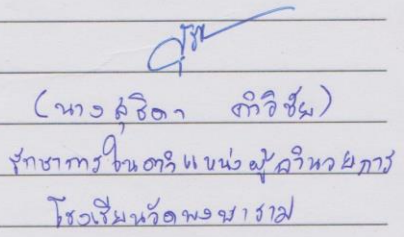 (นางสุชิดา คำวิชัย)
รักษาการในตำแหน่งผู้อำนวยการ
โรงเรียนวัดพงษาราม